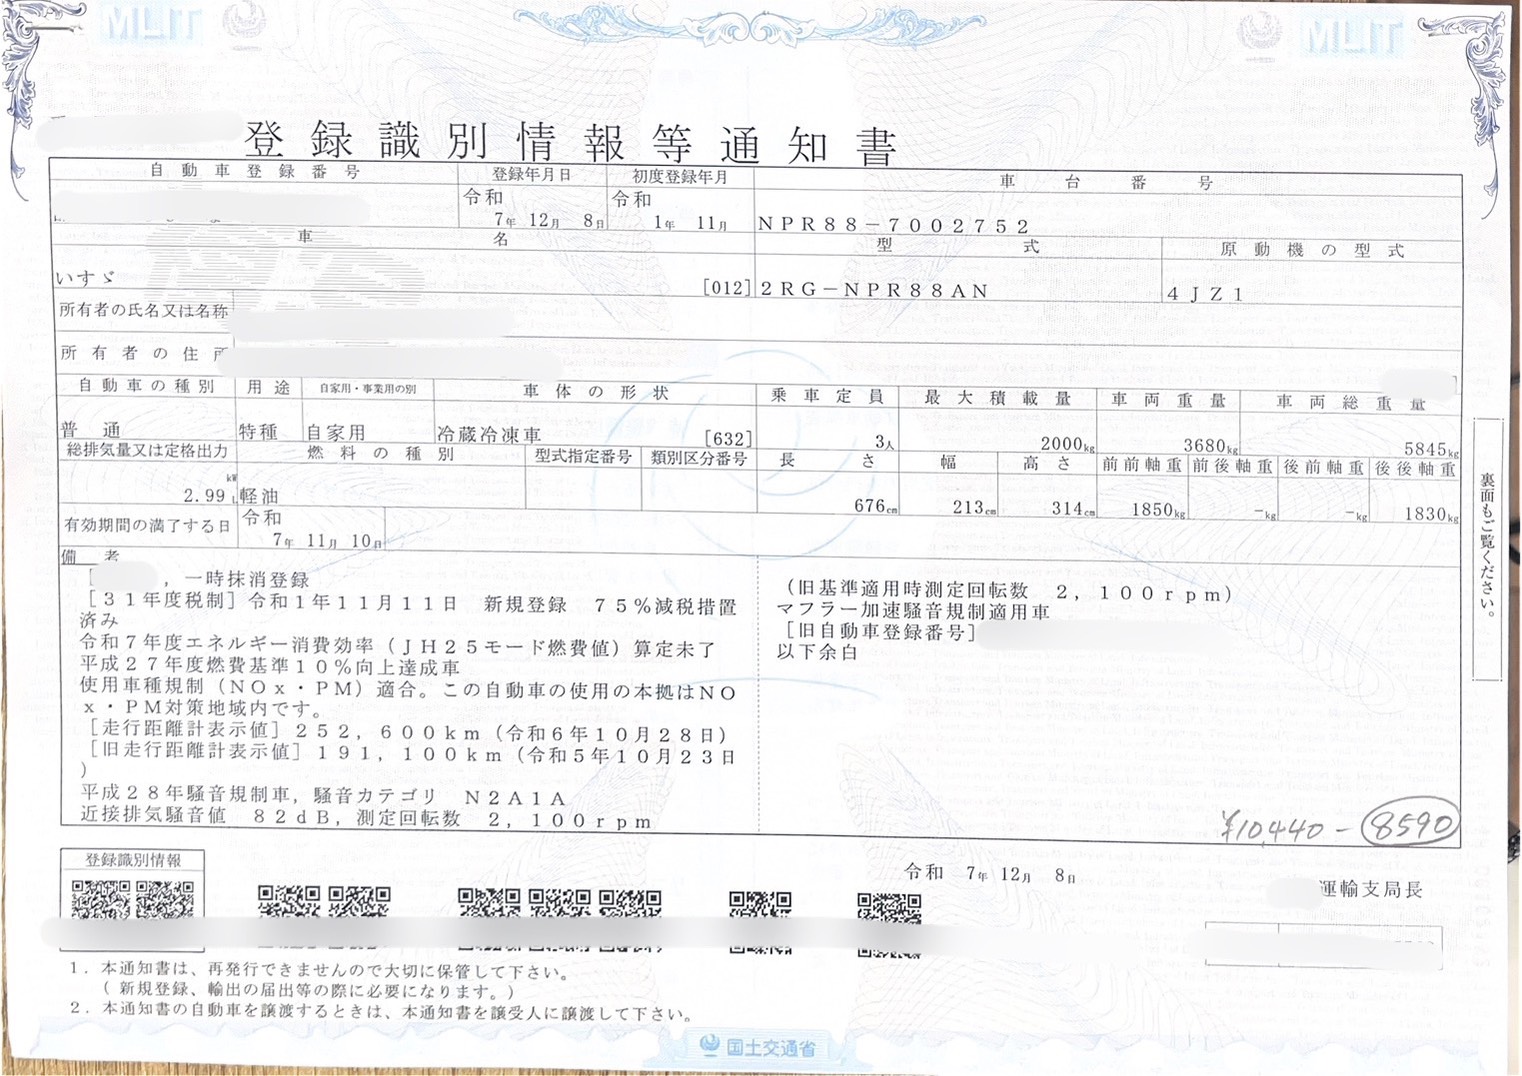 MLIT
MLIT
登録識別情報等通知書
自動車登録番号
登録年月日
初度登録年月
車台番号
令和
7年 12月 8日
令和
1年 11月
NPR88-7002752
車名
型式
原動機の型式
いすゞ
[012]
2RG-NPR88AN
4JZ1
所有者の氏名又は名称
所有者の住所
自動車の種別
用途
自家用・事業用の別
車体の形状
乗車定員
最大積載量
車両重量
車両総重量
普通
特種
自家用
冷蔵冷凍車
[632]
3人
2000kg
3680kg
5845kg
総排気量又は定格出力
燃料の種別
型式指定番号
類別区分番号
長さ
幅
高さ
前前軸重
前後軸重
後前軸重
後後軸重
kW
2.99 L
軽油
676cm
213cm
314cm
1850kg
-kg
-kg
1830kg
有効期間の満了する日
令和
7年 11月 10日
備考
[ ],一時抹消登録
[31年度税制]令和1年11月11日 新規登録 75%減税措置
済み
令和7年度エネルギー消費効率(JH25モード燃費値)算定未了
平成27年度燃費基準10%向上達成車
使用車種規制(NOx・PM)適合。この自動車の使用の本拠はNO
x・PM対策地域内です。
[走行距離計表示値]252,600km(令和6年10月28日)
[旧走行距離計表示値]191,100km(令和5年10月23日
)
平成28年騒音規制車,騒音カテゴリ N2A1A
近接排気騒音値 82dB,測定回転数 2,100rpm
(旧基準適用時測定回転数 2,100rpm)
マフラー加速騒音規制適用車
[旧自動車登録番号]
以下余白
裏面もご覧ください。
¥10,440- 8590
登録識別情報
令和 7年 12月 8日
運輸支局長
1.本通知書は、再発行できませんので大切に保管して下さい。
(新規登録、輸出の届出等の際に必要になります。)
2.本通知書の自動車を譲渡するときは、本通知書を譲受人に譲渡して下さい。
国土交通省